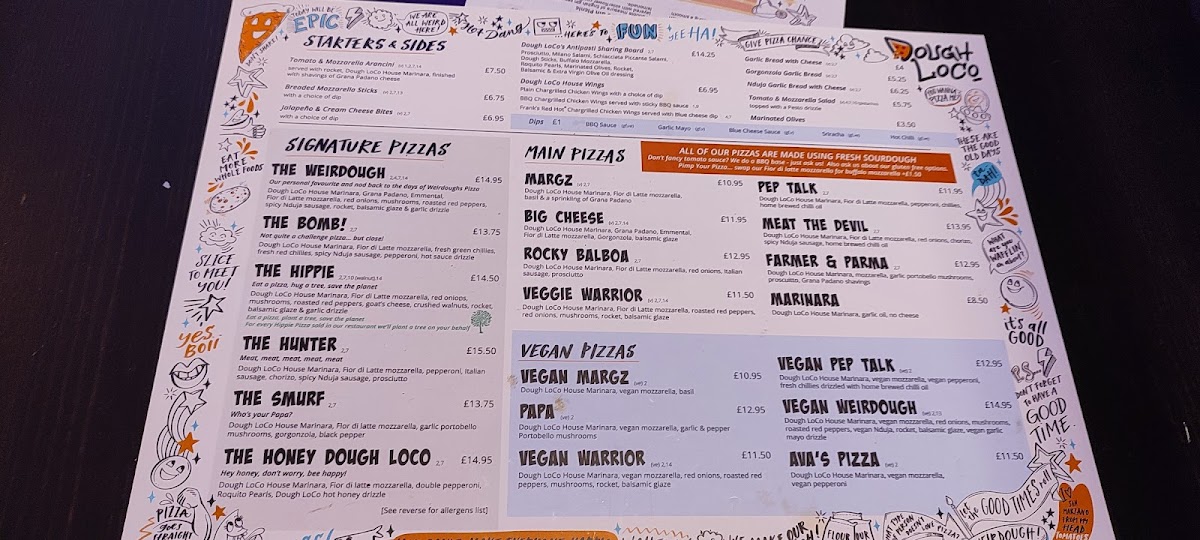 TODAY WILL BE
EPIC
WE ARE
ALL WEIRD
HERE!
Hot Dang
HERE'S TO FUN
YEE HA!
GIVE PIZZA CHANCE
DOUGH
LOCO
DON'T SHARE!
STARTERS & SIDES
Tomato & Mozzarella Arancini £7.50
served with rocket, Dough LoCo House Marinara, finished
with shavings of Grana Padano cheese
Breaded Mozzarella Sticks £6.75
with a choice of dip
Jalapeño & Cream Cheese Bites £6.95
with a choice of dip
Dough LoCo's Antipasti Sharing Board £14.25
Prosciutto, Milano Salami, Schiacciata Piccante Salami,
Dough Socks, Buffalo Mozzarella,
Roquito Pearls, Marinated Olives, Rocket,
Balsamic & Extra Virgin Olive Oil dressing
Dough LoCo House Wings £6.95
Plain Chargrilled Chicken Wings with a choice of dip
BBQ Chargrilled Chicken Wings served with sticky BBQ sauce
Frank's Red Hot Chargrilled Chicken Wings served with Blue cheese dip
Garlic Bread with Cheese £4
Gorgonzola Garlic Bread £5.25
Nduja Garlic Bread with Cheese £6.25
Tomato & Mozzarella Salad £5.75
topped with a Pesto drizzle
Marinated Olives £3.50
Dips £1 BBQ Sauce Garlic Mayo Blue Cheese Sauce Sriracha Hot Chilli
SIGNATURE PIZZAS
THE WEIRDOUGH 2,4,7,14 £14.95
Our personal favourite and nod back to the days of Weirdoughs Pizza
Dough LoCo House Marinara, Grana Padano, Emmental,
Fior di Latte mozzarella, red onions, mushrooms, roasted red peppers,
spicy Nduja sausage, rocket, balsamic glaze & garlic drizzle
THE BOMB! 2,7 £13.75
Not quite a challenge pizza... but close!
Dough LoCo House Marinara, Fior di Latte mozzarella, fresh green chillies,
fresh red chillies, spicy Nduja sausage, pepperoni, hot sauce drizzle
THE HIPPIE 2,7,10 (walnut),14 £14.50
Eat a pizza, hug a tree, save the planet
Dough LoCo House Marinara, Fior di Latte mozzarella, red onions,
mushrooms, roasted red peppers, goat's cheese, crushed walnuts, rocket,
balsamic glaze & garlic drizzle
Eat a pizza, plant a tree, save the planet
For every Hippie Pizza sold in our restaurant we'll plant a tree on your behalf
THE HUNTER 2,7 £15.50
Meat, meat, meat, meat, meat
Dough LoCo House Marinara, Fior di Latte mozzarella, pepperoni, Italian
sausage, chorizo, spicy Nduja sausage, prosciutto
THE SMURF 2,7 £13.75
Who's your Papa?
Dough LoCo House Marinara, Fior di latte mozzarella, garlic portobello
mushrooms, gorgonzola, black pepper
THE HONEY DOUGH LOCO 2,7 £14.95
Hey honey, don't worry, bee happy!
Dough LoCo House Marinara, Fior di latte mozzarella, double pepperoni,
Roquito Pearls, Dough LoCo hot honey drizzle
[See reverse for allergens list]
MAIN PIZZAS
ALL OF OUR PIZZAS ARE MADE USING FRESH SOURDOUGH
Don't fancy tomato sauce? We do a BBQ base - just ask us! Also ask us about our gluten free options.
Pimp Your Pizza... swap our Fior di latte mozzarella for buffalo mozzarella +£1.50
MARGZ (v) 2,7 £10.95
Dough LoCo House Marinara, Fior di Latte mozzarella,
basil & a sprinkling of Grana Padano
BIG CHEESE (v) 2,7,14 £11.95
Dough LoCo House Marinara, Grana Padano, Emmental,
Fior di Latte mozzarella, Gorgonzola, balsamic glaze
ROCKY BALBOA 2,7 £12.95
Dough LoCo House Marinara, Fior di Latte mozzarella, red onions, Italian
sausage, prosciutto
VEGGIE WARRIOR (v) 2,7,14 £11.50
Dough LoCo House Marinara, Fior di Latte mozzarella, roasted red peppers,
red onions, mushrooms, rocket, balsamic glaze
PEP TALK 2,7 £11.95
Dough LoCo House Marinara, Fior di Latte mozzarella, pepperoni, chillies,
home brewed chilli oil
MEAT THE DEVIL 2,7 £13.95
Dough LoCo House Marinara, Fior di Latte mozzarella, red onions, chorizo,
spicy Nduja sausage, home brewed chilli oil
FARMER & PARMA 2,7 £12.95
Dough LoCo House Marinara, mozzarella, garlic portobello mushrooms,
prosciutto, Grana Padano shavings
MARINARA £8.50
Dough LoCo House Marinara, garlic oil, no cheese
VEGAN PIZZAS
VEGAN MARGZ (ve) 2 £10.95
Dough LoCo House Marinara, vegan mozzarella, basil
PAPA (ve) 2 £12.95
Dough LoCo House Marinara, vegan mozzarella, garlic & pepper
Portobello mushrooms
VEGAN WARRIOR (ve) 2,14 £11.50
Dough LoCo House Marinara, vegan mozzarella, red onions, roasted red
peppers, mushrooms, rocket, balsamic glaze
VEGAN PEP TALK (ve) 2 £12.95
Dough LoCo House Marinara, vegan mozzarella, vegan pepperoni,
fresh chillies drizzled with home brewed chilli oil
VEGAN WEIRDOUGH £14.95
Dough LoCo House Marinara, vegan mozzarella, red onions, mushrooms,
roasted red peppers, vegan Nduja, rocket, balsamic glaze, vegan garlic
mayo drizzle
AVA'S PIZZA (ve) 2 £11.50
Dough LoCo House Marinara, vegan mozzarella,
vegan pepperoni
EAT
MORE
WHOLE FOODS
SLICE
TO MEET
YOU!
yes
BOII
PIZZA
GOES
STRAIGHT
YOU WANNA
PIZZA ME?
THESE ARE
THE GOOD
OLD DAYS
WHAT
ARE YOU
WAFFLIN
on about?
it's all
GOOD
P.S.
DON'T FORGET
TO HAVE A
GOOD
TIME
Let the GOOD TIMES roll
FLOUR
TOMATOES